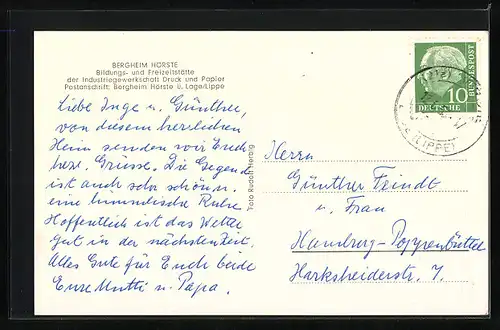 BERGHEIM HÖRSTE
Bildungs- und Freizeitstätte
der Industriegewerkschaft Druck und Papier
Postanschrift: Bergheim Hörste ü. Lage/Lippe
Liebe Inge u. Günther,
von diesem herrlichen
Heim senden wir Euch
herz. Grüsse. Die Gegend
ist auch sehr schön u.
eine himmlische Ruhe
Hoffentlich ist das Wetter
gut in der nächsten Zeit.
Alles Gute für Euch beide
Eure Mutti u. Papa.
Foto Rudolf Hertzig
10
DEUTSCHE
BUNDESPOST
(LIPPE)
Herrn
Günther
u. Frau
Hamburg-Poppenbüttel
Harksheiderstr. 7.